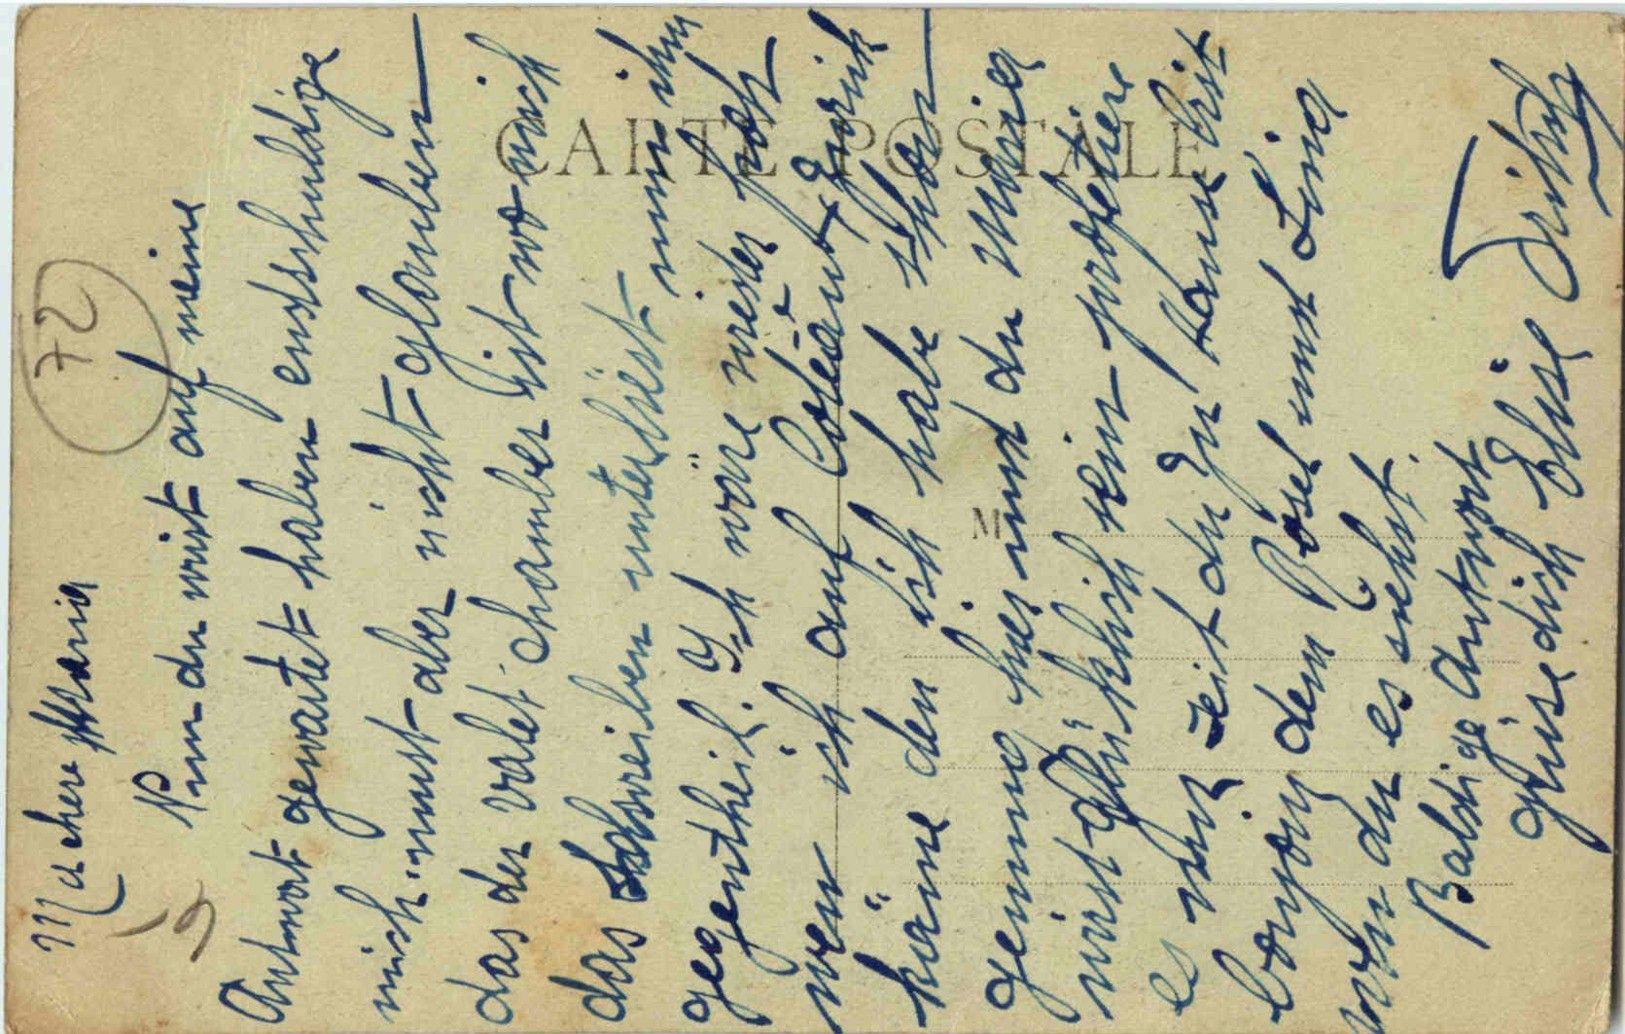 CARTE POSTALE
M
72
9
Ma chere Maria
Nun du wirst auf meine
Antwort gewartet haben entschuldige
mich must aber nicht glauben
das der valet chamber ist wo mich
das schreiben unterläst nun ihm
gegentheil. Ich wäre wieder froh
wen ich auf Zürich
käme den ich habe schon
genung hier und du Maria
wirst glüklich sein profetiere
es nur Zeit du Zu Hause bist
bonjour dem Rösel und Lina
wen du es siehst.
Baldige Antwort
grüse dich Elise